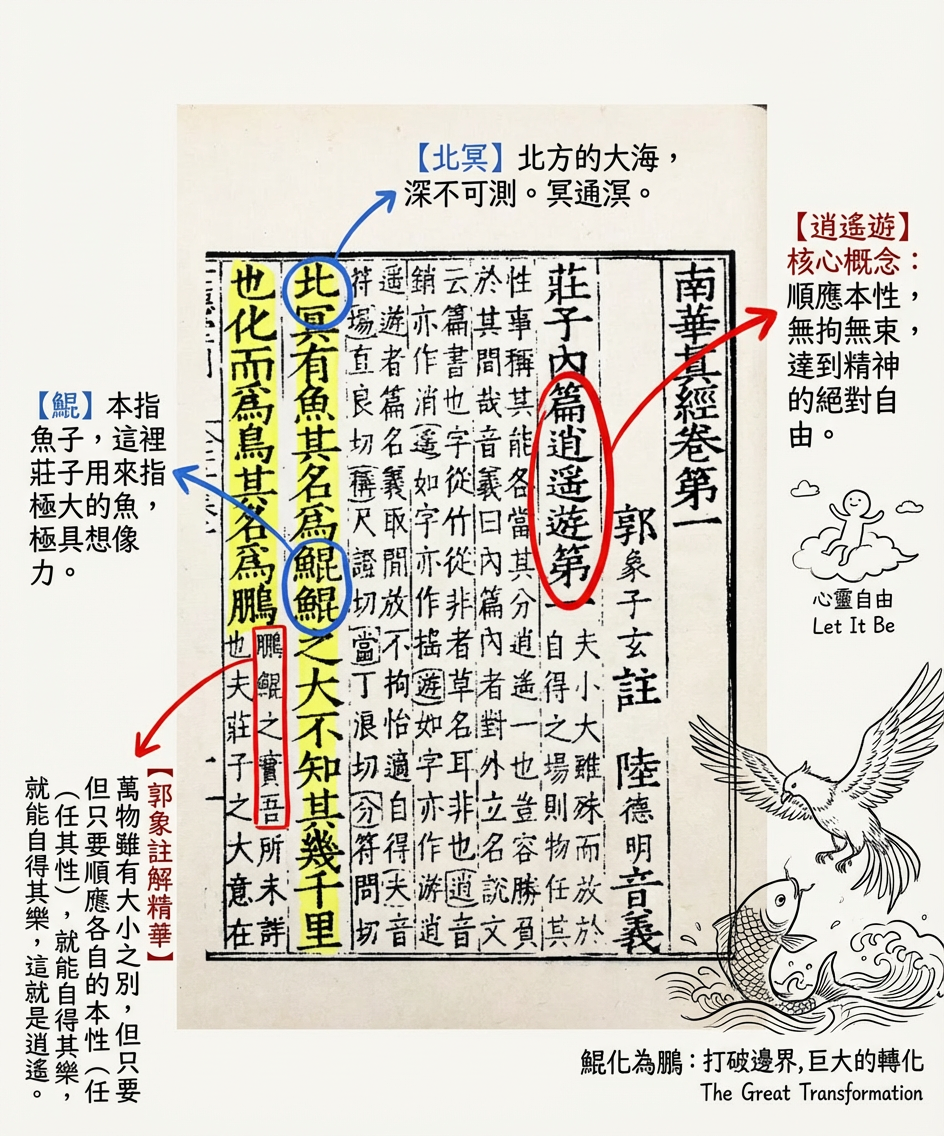 【北冥】北方的大海，
深不可測。冥通溟。
【逍遙遊】
核心概念：
順應本性，
無拘無束，
達到精神
的絕對自
由。
南華眞經卷第一
郭象子玄註 陸德明音義
莊子內篇逍遥遊第一
夫小大雖殊而放於
自得之場則物任其
性事稱其能各當其分逍遥一也豈容勝負
於其間哉音義曰內篇內者對外立名說文
云篇書也字從竹從非者草名耳非也逍音
銷亦作消遥如字亦作搖遊如字亦作游逍
遥遊者篇名義取閒放不拘怡適自得夫音
符場直良切稱尺證切當丁浪切分符問切
北冥有魚其名爲鯤鯤之大不知其幾千里
也化而爲鳥其名爲鵬
鵬鯤之實吾所未詳
也夫莊子之大意在
【鯤】本指
魚子，這裡
莊子子，用來指
極大的魚，
極大具想像
力。
心靈自由
Let It Be
【郭象註解精華】
萬物雖有大小之別，但只要
但只要順應各自的本性（任
（任其性），就能自得其樂，
就能自得其樂，這就是逍遙。
鯤化為鵬：打破邊界，巨大的轉化
The Great Transformation